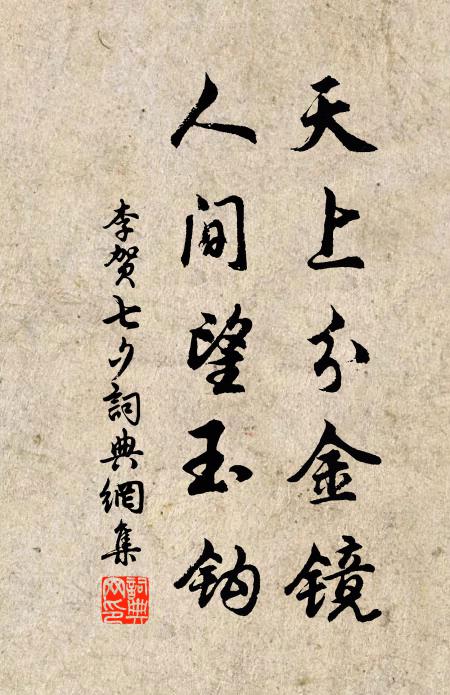 天上分金镜
人间望玉钩
李贺七夕詞典網集
詞典网印